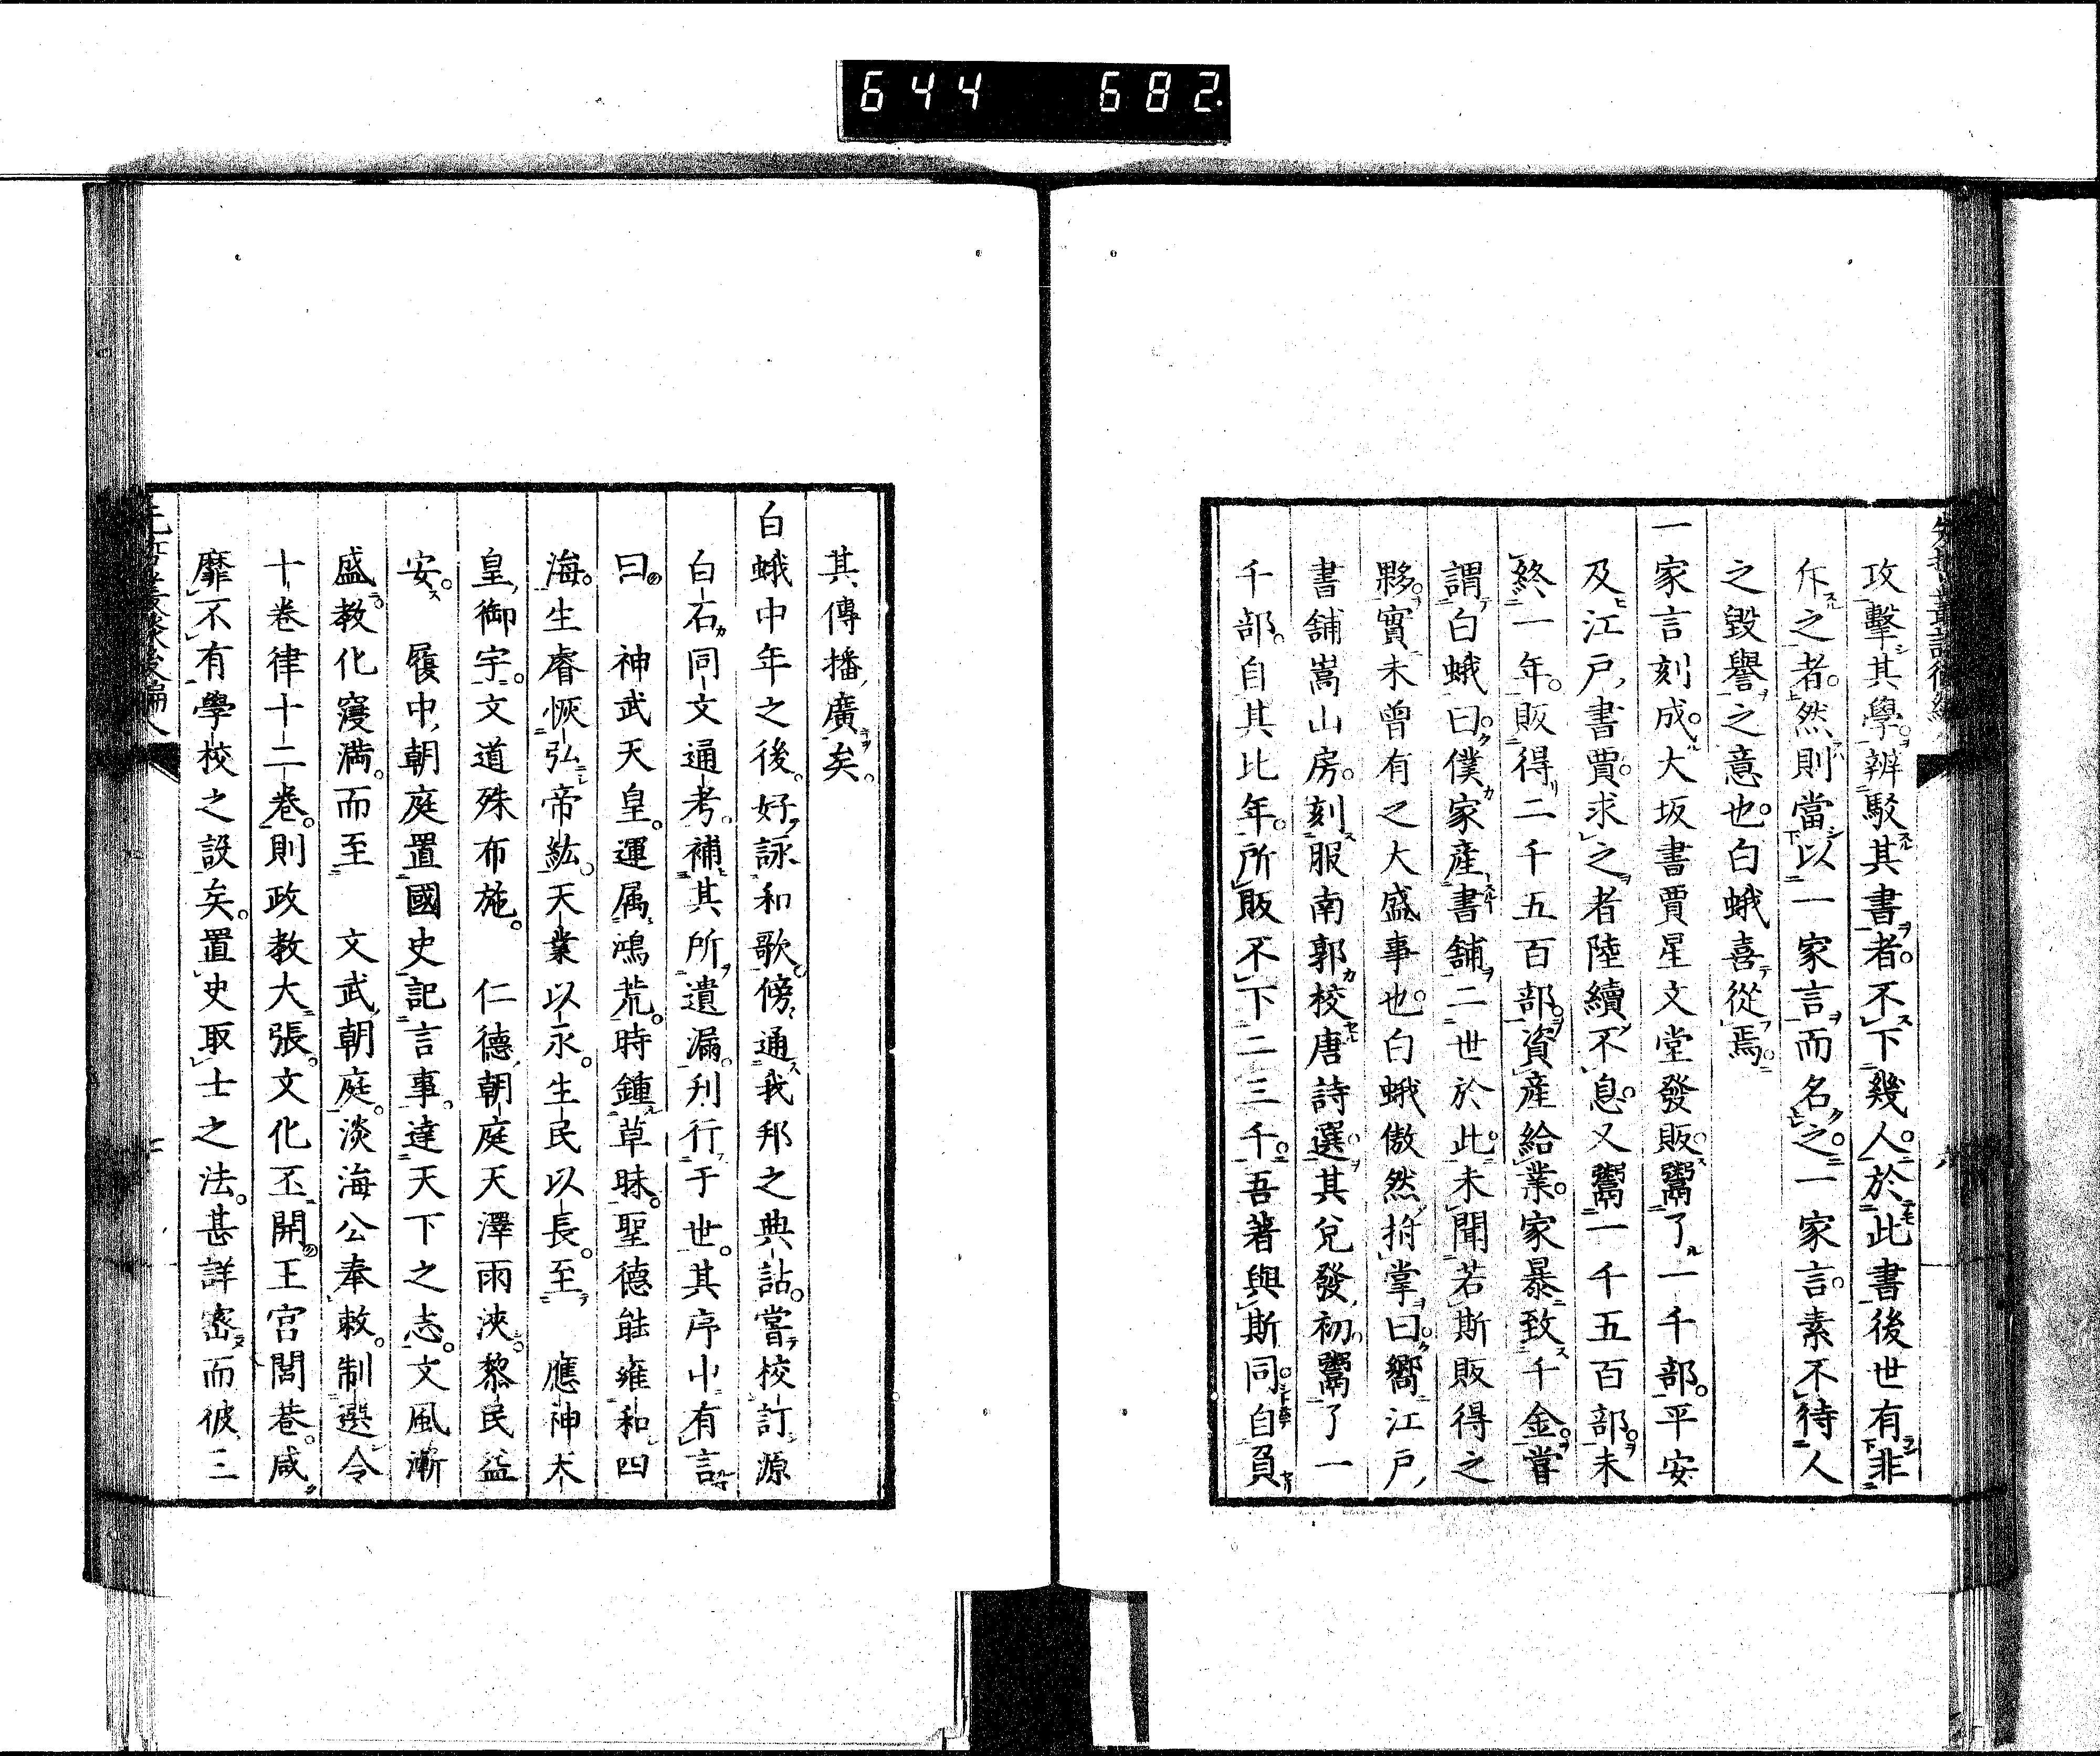 644 682
攻擊其學。辨駁其書者。不下幾人。於此書後世有非
斥之者。然則當以一家言而名之。一家言。素不待人
之毀譽之意也。白蛾喜從焉。
一家言刻成。大坂書賈星文堂發販。鬻了一千部。平安
及江戸書賈。求之者陸續不息。又鬻一千五百部。未
終一年。販得二千五百部。資產給業。家暴致千金。嘗
謂白蛾曰。僕家產書舖二世於此。未聞若斯販得之
夥。實未曾有之大盛事也。白蛾傲然拊掌曰。嚮江戸
書舖嵩山房。刻服南郭校唐詩選。其兌發初鬻了一
千部。自其比年。所販不下二三千。吾著與斯同。自負
其傳播廣矣。
白蛾中年之後。好詠和歌。傍通我邦之典詁。嘗校訂源
白石同文通考。補其所遺漏。刋行于世。其序中有言
曰。神武天皇。運属鴻荒。時鍾草昧。聖德能雍和四
海。生睿恢弘帝紘。天業以永。生民以長。至應神天
皇御宇。文道殊布施。仁德朝庭天澤雨浹。黎民益
安。履中朝庭置國史記言事。達天下之志。文風漸
盛。教化寖満。而至文武朝庭。淡海公奉敕。制選令
十卷律十二卷。則政教大張。文化丕開。王宮閭巷。咸
靡不有學校之設矣。置史取士之法。甚詳密而彼三